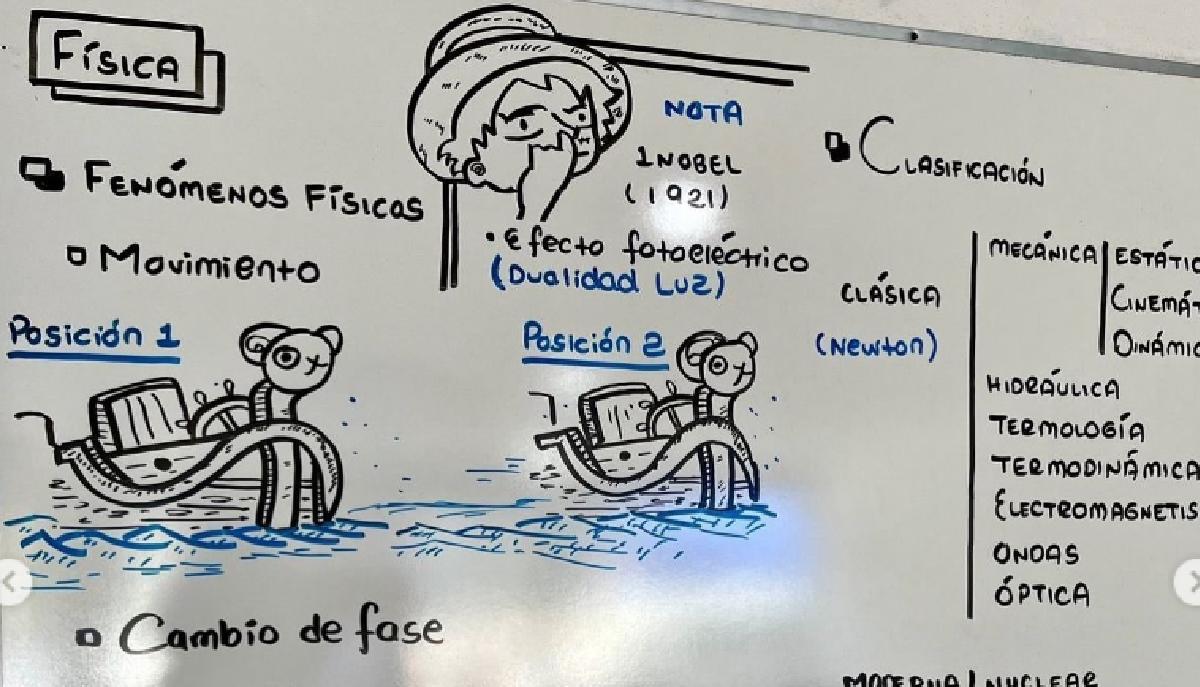 FÍSICA
FENÓMENOS FÍSICOS
Movimiento
Posición 1
Posición 2
Cambio de fase
NOTA
1 NOBEL
(1921)
• Efecto fotoeléctrico
(Dualidad Luz)
CLASIFICACIÓN
CLÁSICA
(Newton)
MECÁNICA
ESTÁTIC
CINEMÁT
DINÁMIC
HIDRÁULICA
TERMOLOGÍA
TERMODINÁMICA
ELECTROMAGNETIS
ONDAS
ÓPTICA
MODERNA NUCLEAR